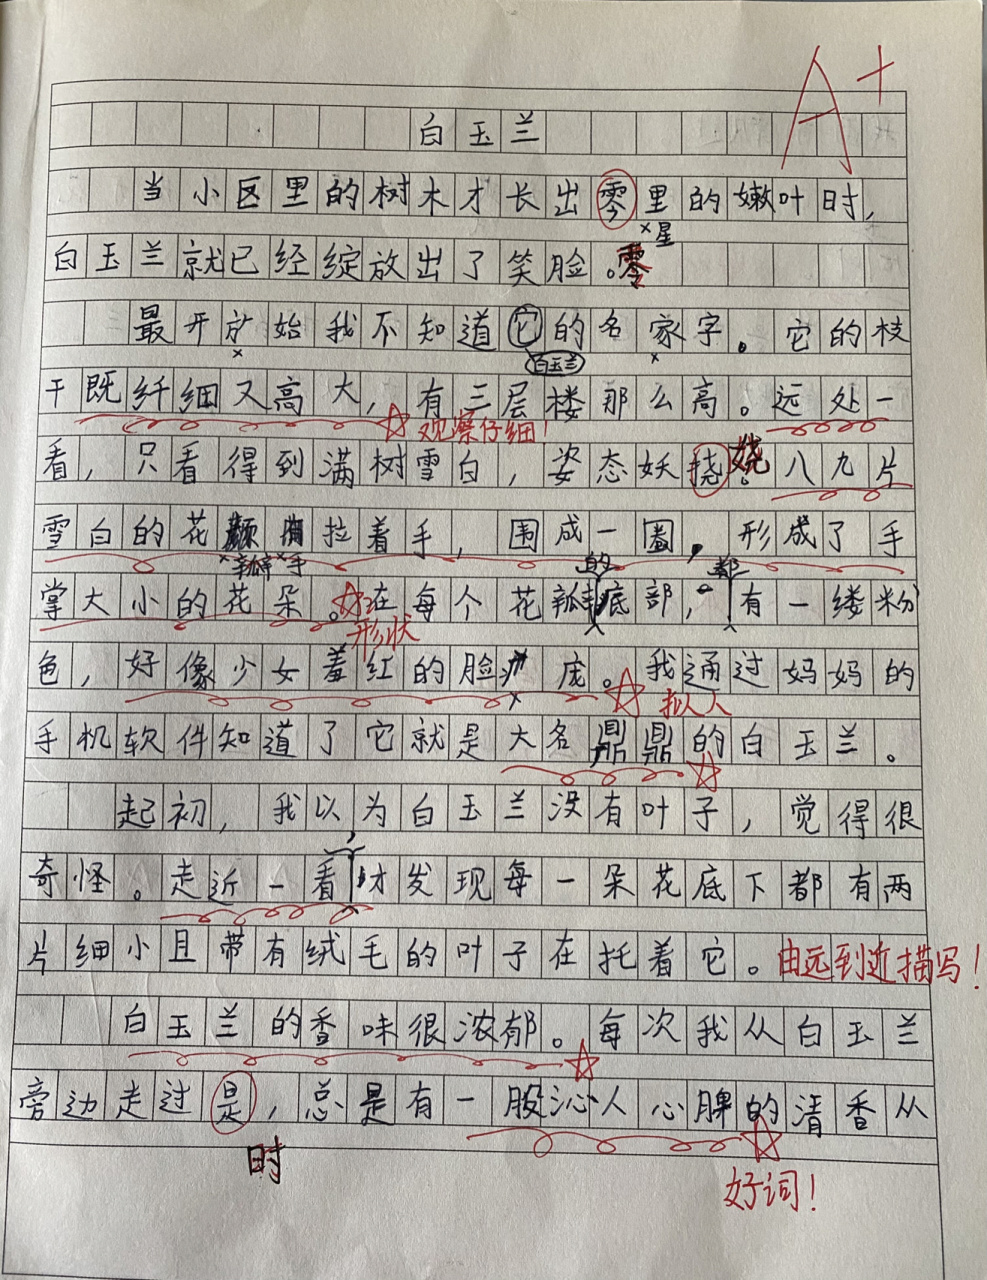 A+
白玉兰
当小区里的树木才长出零里的嫩叶时，
星
白玉兰就已经绽放出了笑脸。零
最开始我不知道它的名家字。它的枝
白玉兰
干既纤细又高大，有三层楼那么高。远处一
观察仔细！
看，只看得到满树雪白，姿态妖挠。娆八九片
雪白的花拉着手，围成一圈，形成了手
瓣 手 的 都
掌大小的花朵。在每个花瓣底部，有一缕粉
形状
色，好像少女羞红的脸庞。我通过妈妈的
拟人
手机软件知道了它就是大名鼎鼎的白玉兰。
起初，我以为白玉兰没有叶子，觉得很
，
奇怪。走近一看才发现每一朵花底下都有两
片细小且带有绒毛的叶子在托着它。由远到近描写！
白玉兰的香味很浓郁。每次我从白玉兰
旁边走过是，总是有一股沁人心脾的清香从
时
好词！